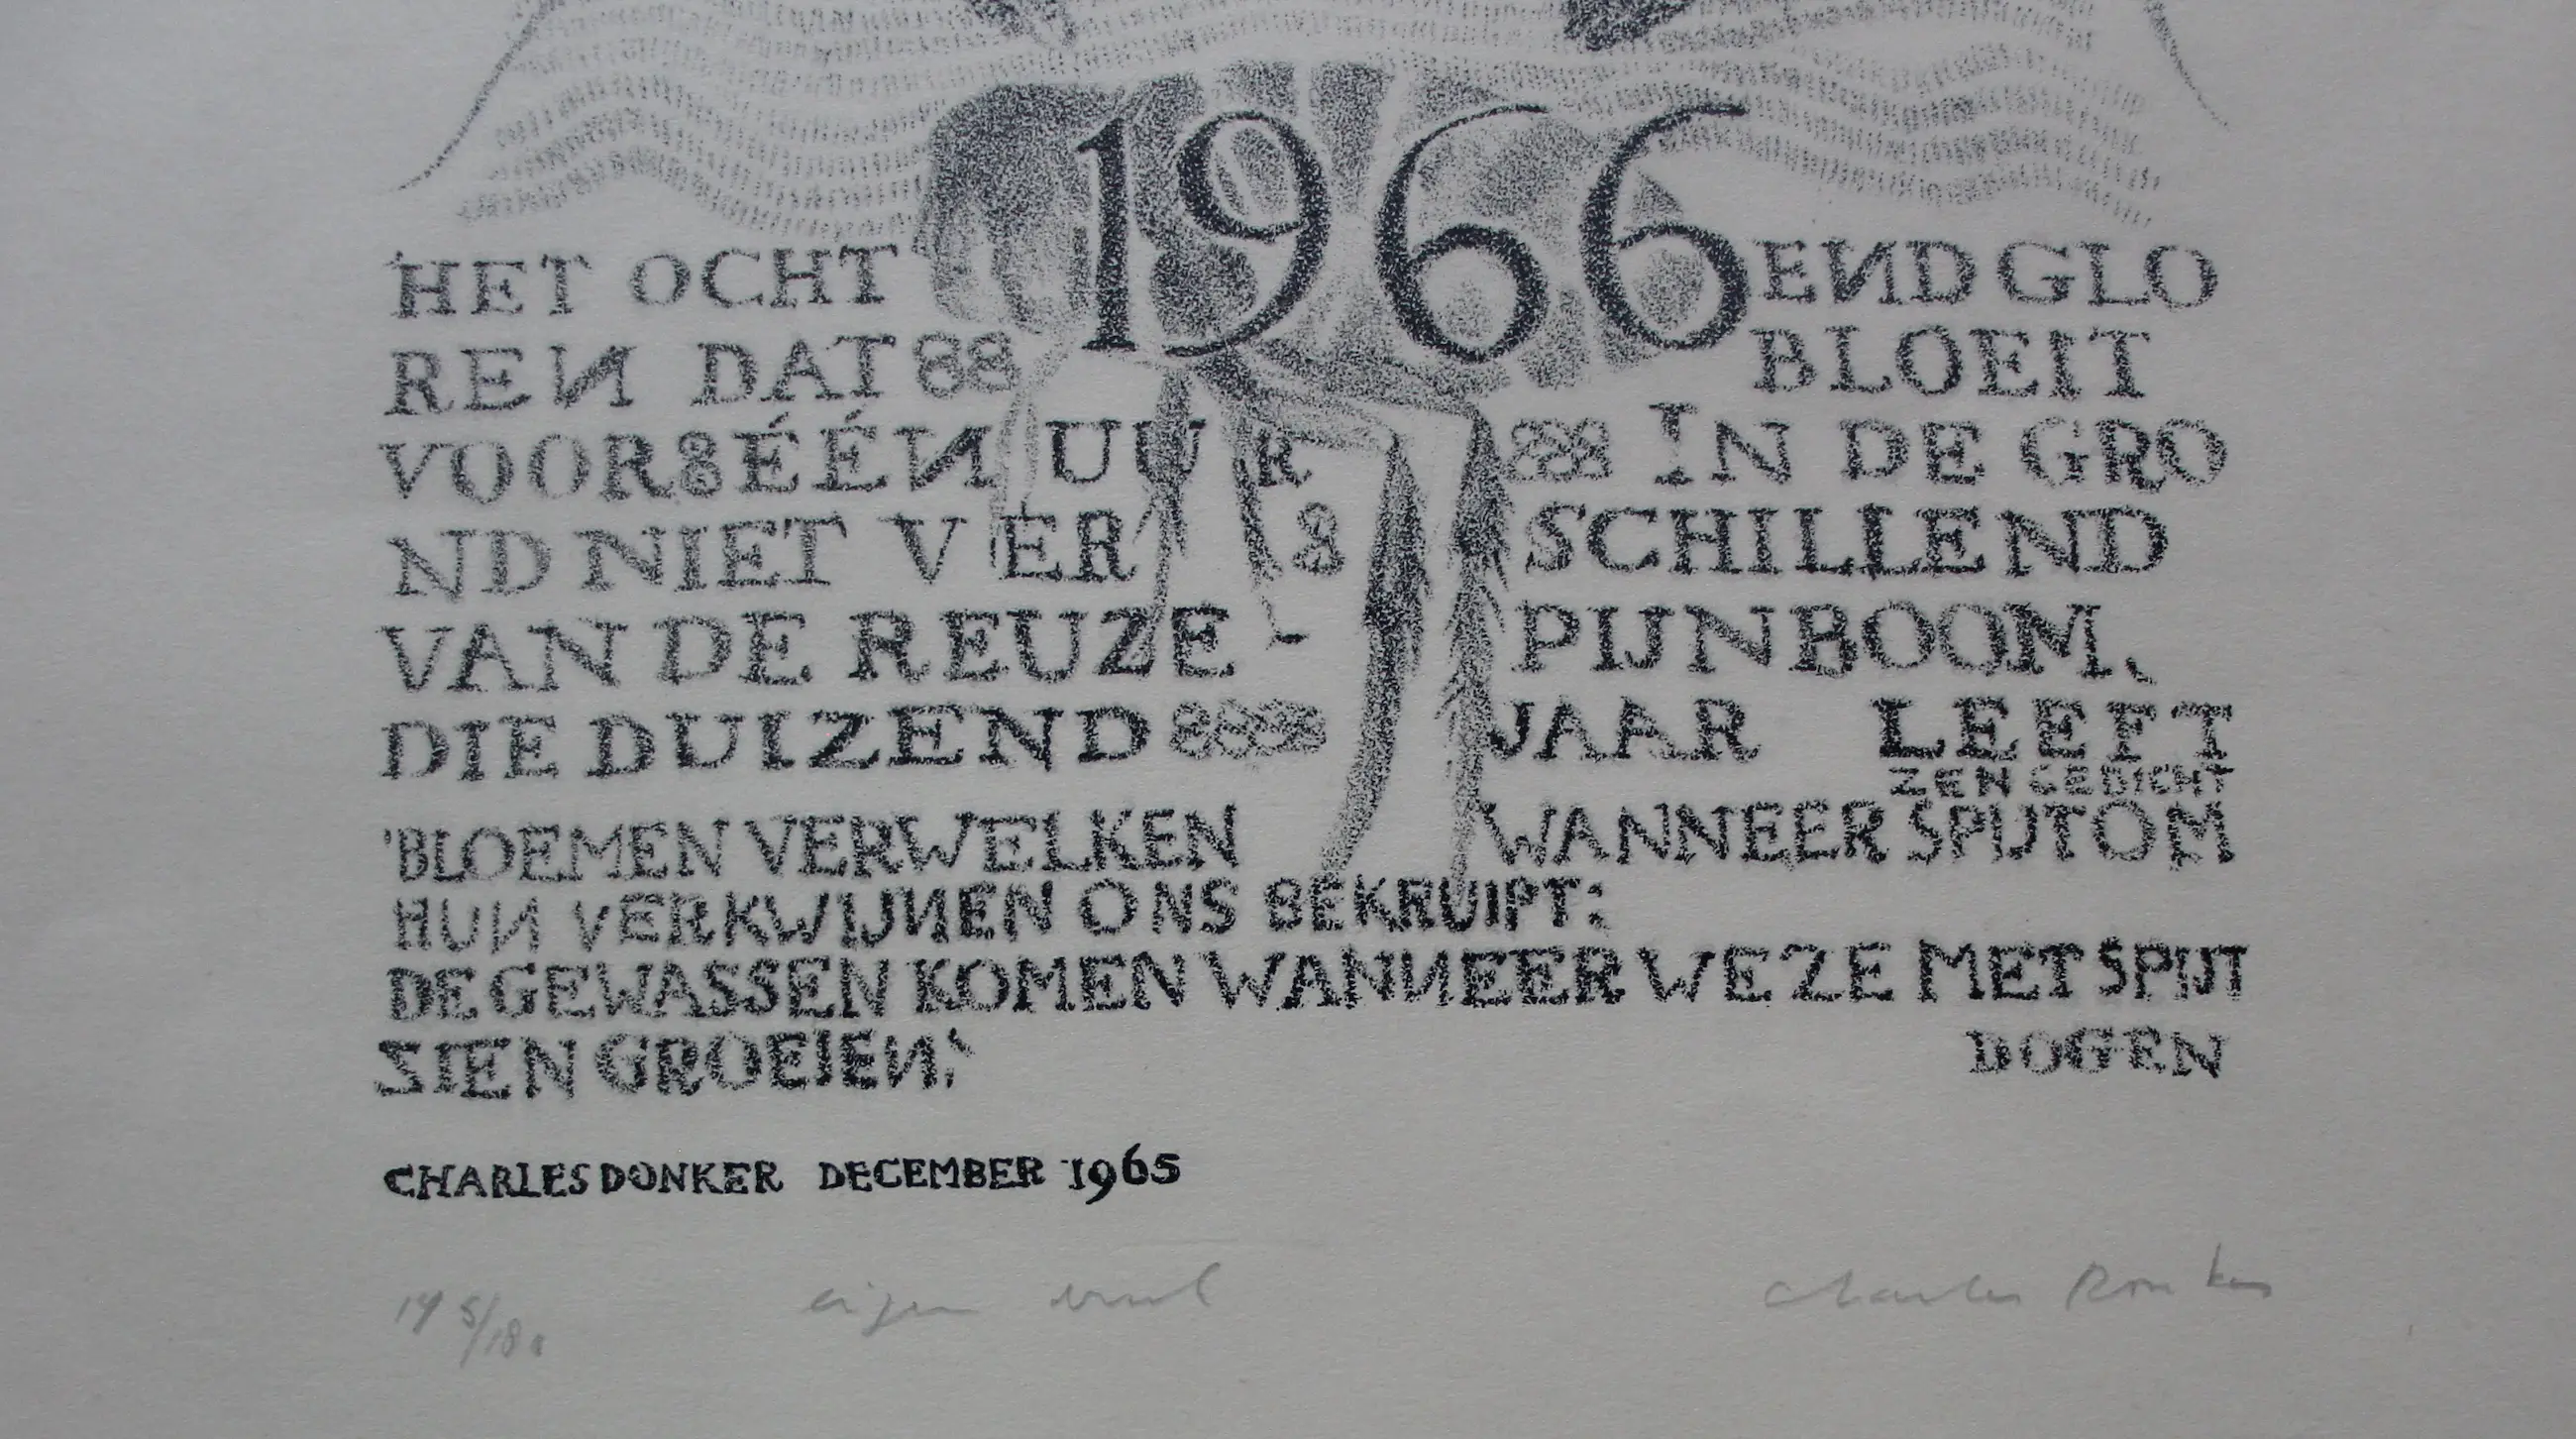 1966
HET OCHT ENDGLO
REN DAT 88 BLOEIT
VOOR8ÉÉN UUR 88 IN DE GRO
ND NIET VER 8 SCHILLEND
VAN DE REUZE- PIJNBOOM,
DIE DUIZEND 888 JAAR LEEFT
ZEN GEDICHT
'BLOEMEN VERWELKEN WANNEER SPIJT OM
HUN VERKWIJNEN ONS BEKRUIPT:
DE GEWASSEN KOMEN WANNEER WE ZE MET SPIJT
ZIEN GROEIEN;'
DOGEN
CHARLES DONKER DECEMBER 1965
eigen druk Charles Donker